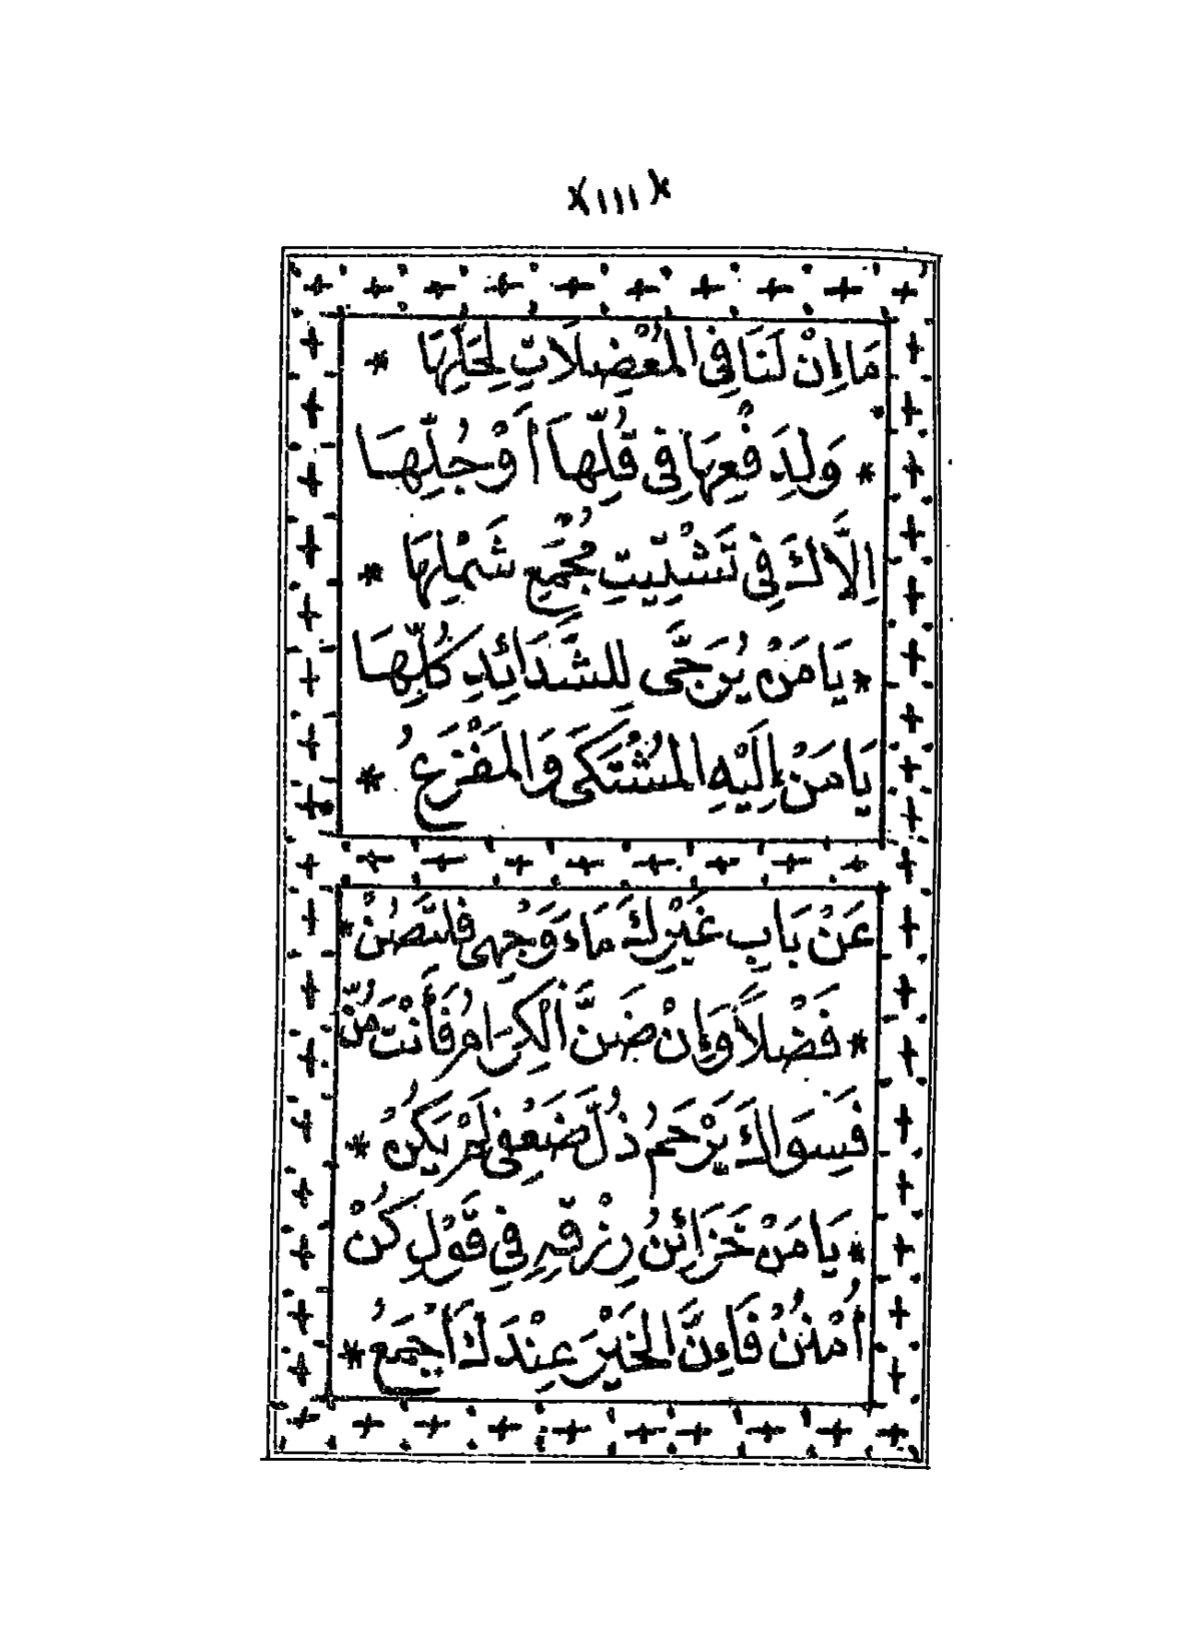 ١١١
مَا إِنْ لَنَا فِي الْمُعْضِلَاتِ لِحَلِّهَا *
* وَلِدَفْعِهَا فِي قُلِّهَا أَوْ جُلِّهَا
إِلَّاكَ فِي تَشْتِيتِ مُجْمَعِ شَمْلِهَا *
* يَا مَنْ يُرَجَّى لِلشَّدَائِدِ كُلِّهَا
يَا مَنْ إِلَيْهِ الْمُشْتَكَى وَالْمَفْزَعُ *
عَنْ بَابِ غَيْرِكَ مَاءَ وَجْهِي فَلْتَصُنْ *
* فَضْلًا وَإِنْ ضَنَّ الْكِرَامُ فَأَنْتَ مُنّ
فَسِوَاكَ يَرْحَمُ ذُلَّ ضَعْفِي لَمْ يَكُنْ *
* يَا مَنْ خَزَائِنُ رِزْقِهِ فِي قَوْلِ كُنْ
أُمْنُنْ فَإِنَّ الْخَيْرَ عِنْدَكَ أَجْمَعُ *